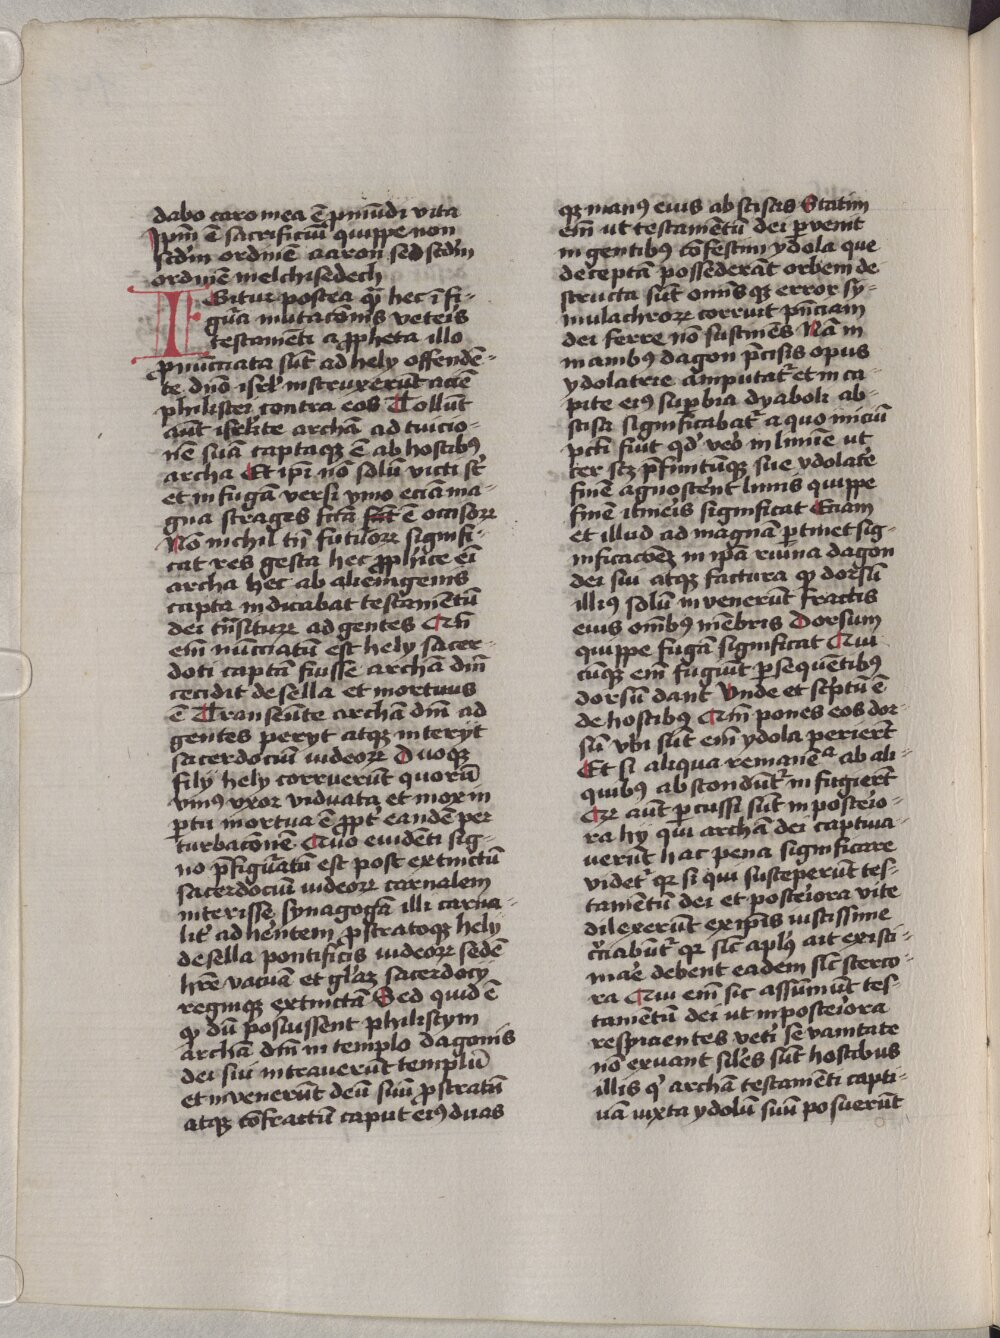 dabo caro mea ē ꝑ mūdi vita
Ipm̄ ē sacrificiū quippe non
scd̄m ordinē aaron sed scd̄m
ordinē melchisedech
IGitur postea qͣ hec ī fi-
gūa mutacōnis veteris
testamēti a ꝓpheta illo
ꝓnūcciata sūt ad hely offendē-
te dn̄o isrl̄ instruxerūt aciē
philistei contra eos Tollūt
aūt isrl̄ite archā ad tuicio-
nē suā captaqꝫ ē ab hostibꝰ
archa Et ip̄i nō solū victi st̄
et in fugā versi ymo eciā ma-
gna strages fc̄ta ē occisoꝝ
Nō nichil tn̄ futiloꝝ signifi-
cat res gesta hec ꝓph̄ice ei
archa hec ab alienigenis
capta indicabat testamētū
dei trā̄siturꝫ ad gentes Cū
em̄ nūcciatū est hely sacer-
doti captā fuisse archā dn̄i
cecidit de sella et mortuus
ē Transeūte archā dn̄i ad
gentes peryt atqꝫ interyt
sacerdociū iudeoꝝ Duoqꝫ
filÿ hely corruerūt quorū
vniꝰ vxor viduata et mox in
ꝑtu mortua ē ꝓpt̄ eandē per
turbacōnē Quo euidēti sig-
no p̄figūatū est post extinctū
sacerdociū iudeoꝝ carnalem
interisse synagogā illi carna-
lit̄ adherētem ꝓstratoqꝫ hely
de sella pontificis iudeoꝝ sedē
hr̄e vacuā et gl̄iaꝫ sacerdocÿ
regniqꝫ extinctā Sed quid ē
qͥ dū posuissent philistym
archā dn̄i in templo dagonis
dei sui intrauerūt templū
et inuenerūt deū suū ꝓstratū
atqꝫ cōfractū caput eiꝰ duas
qꝫ manꝰ eius abscisas Statim
em̄ ut testamētū dei ꝑuenit
in gentibꝰ cōfestim ydola que
deceptā possederāt orbem de-
structa sūt omīs qꝫ error sy-
mulachroꝝ corruit pn̄ciam
dei ferre nō sustinēs Nā in
manibꝰ dagon p̄cisis opus
ydolatrie āputat̄ et in ca-
pite eiꝰ suꝑbia dyaboli ab-
scisa significabat̄ a quo iniciū
pctī fiūt qd̄ vero in limine ut
ter scꝫ p̄finitūqꝫ sue ydolat̄e
finē agnoscēnt limis quippe
finē itineis significat Etiam
et illud ad magnā ꝑtinet sig-
nificacōeꝫ in ip̄a ruina dagon
dei sui atqꝫ factura qͥ dorsū
illiꝰ solū inuenerūt Fractis
eius om̄ibꝰ mēbris Dorsum
quippe fugā significat Qui
cūqꝫ em̄ fugiūt ꝑsequētibꝰ
dorsū dant Vnde et sc̄ptū ē
de hostibꝰ Qm̄ pones eos dor-
sū vbi sūt em̄ ydola perierūt
Et si aliqua remanēᵃ ab ali-
quibꝰ abscondūt̄ in fugierūt
Qꝫ aūt ꝑcussi sūt in posteio-
ra hÿ qui archā dei captiua-
uerūt hac pena significare
videt̄ qꝫ si qui susceperūt tes-
tamētū dei et posteiora vite
dilexerūt ex ip̄is iustissime
c̄ciabūt̄ qꝫ sic̄ apl̄ꝰ ait existi-
mare debent eadem sic̄ sterco-
ra Qui em̄ sic assūmūt tes-
tamētū dei ut in posteiora
respicientes vet̄i se vanitate
nō exuant siles sūt hostibus
illis qͥ archā testamēti capti-
uā iuxta ydolū suū posuerūt